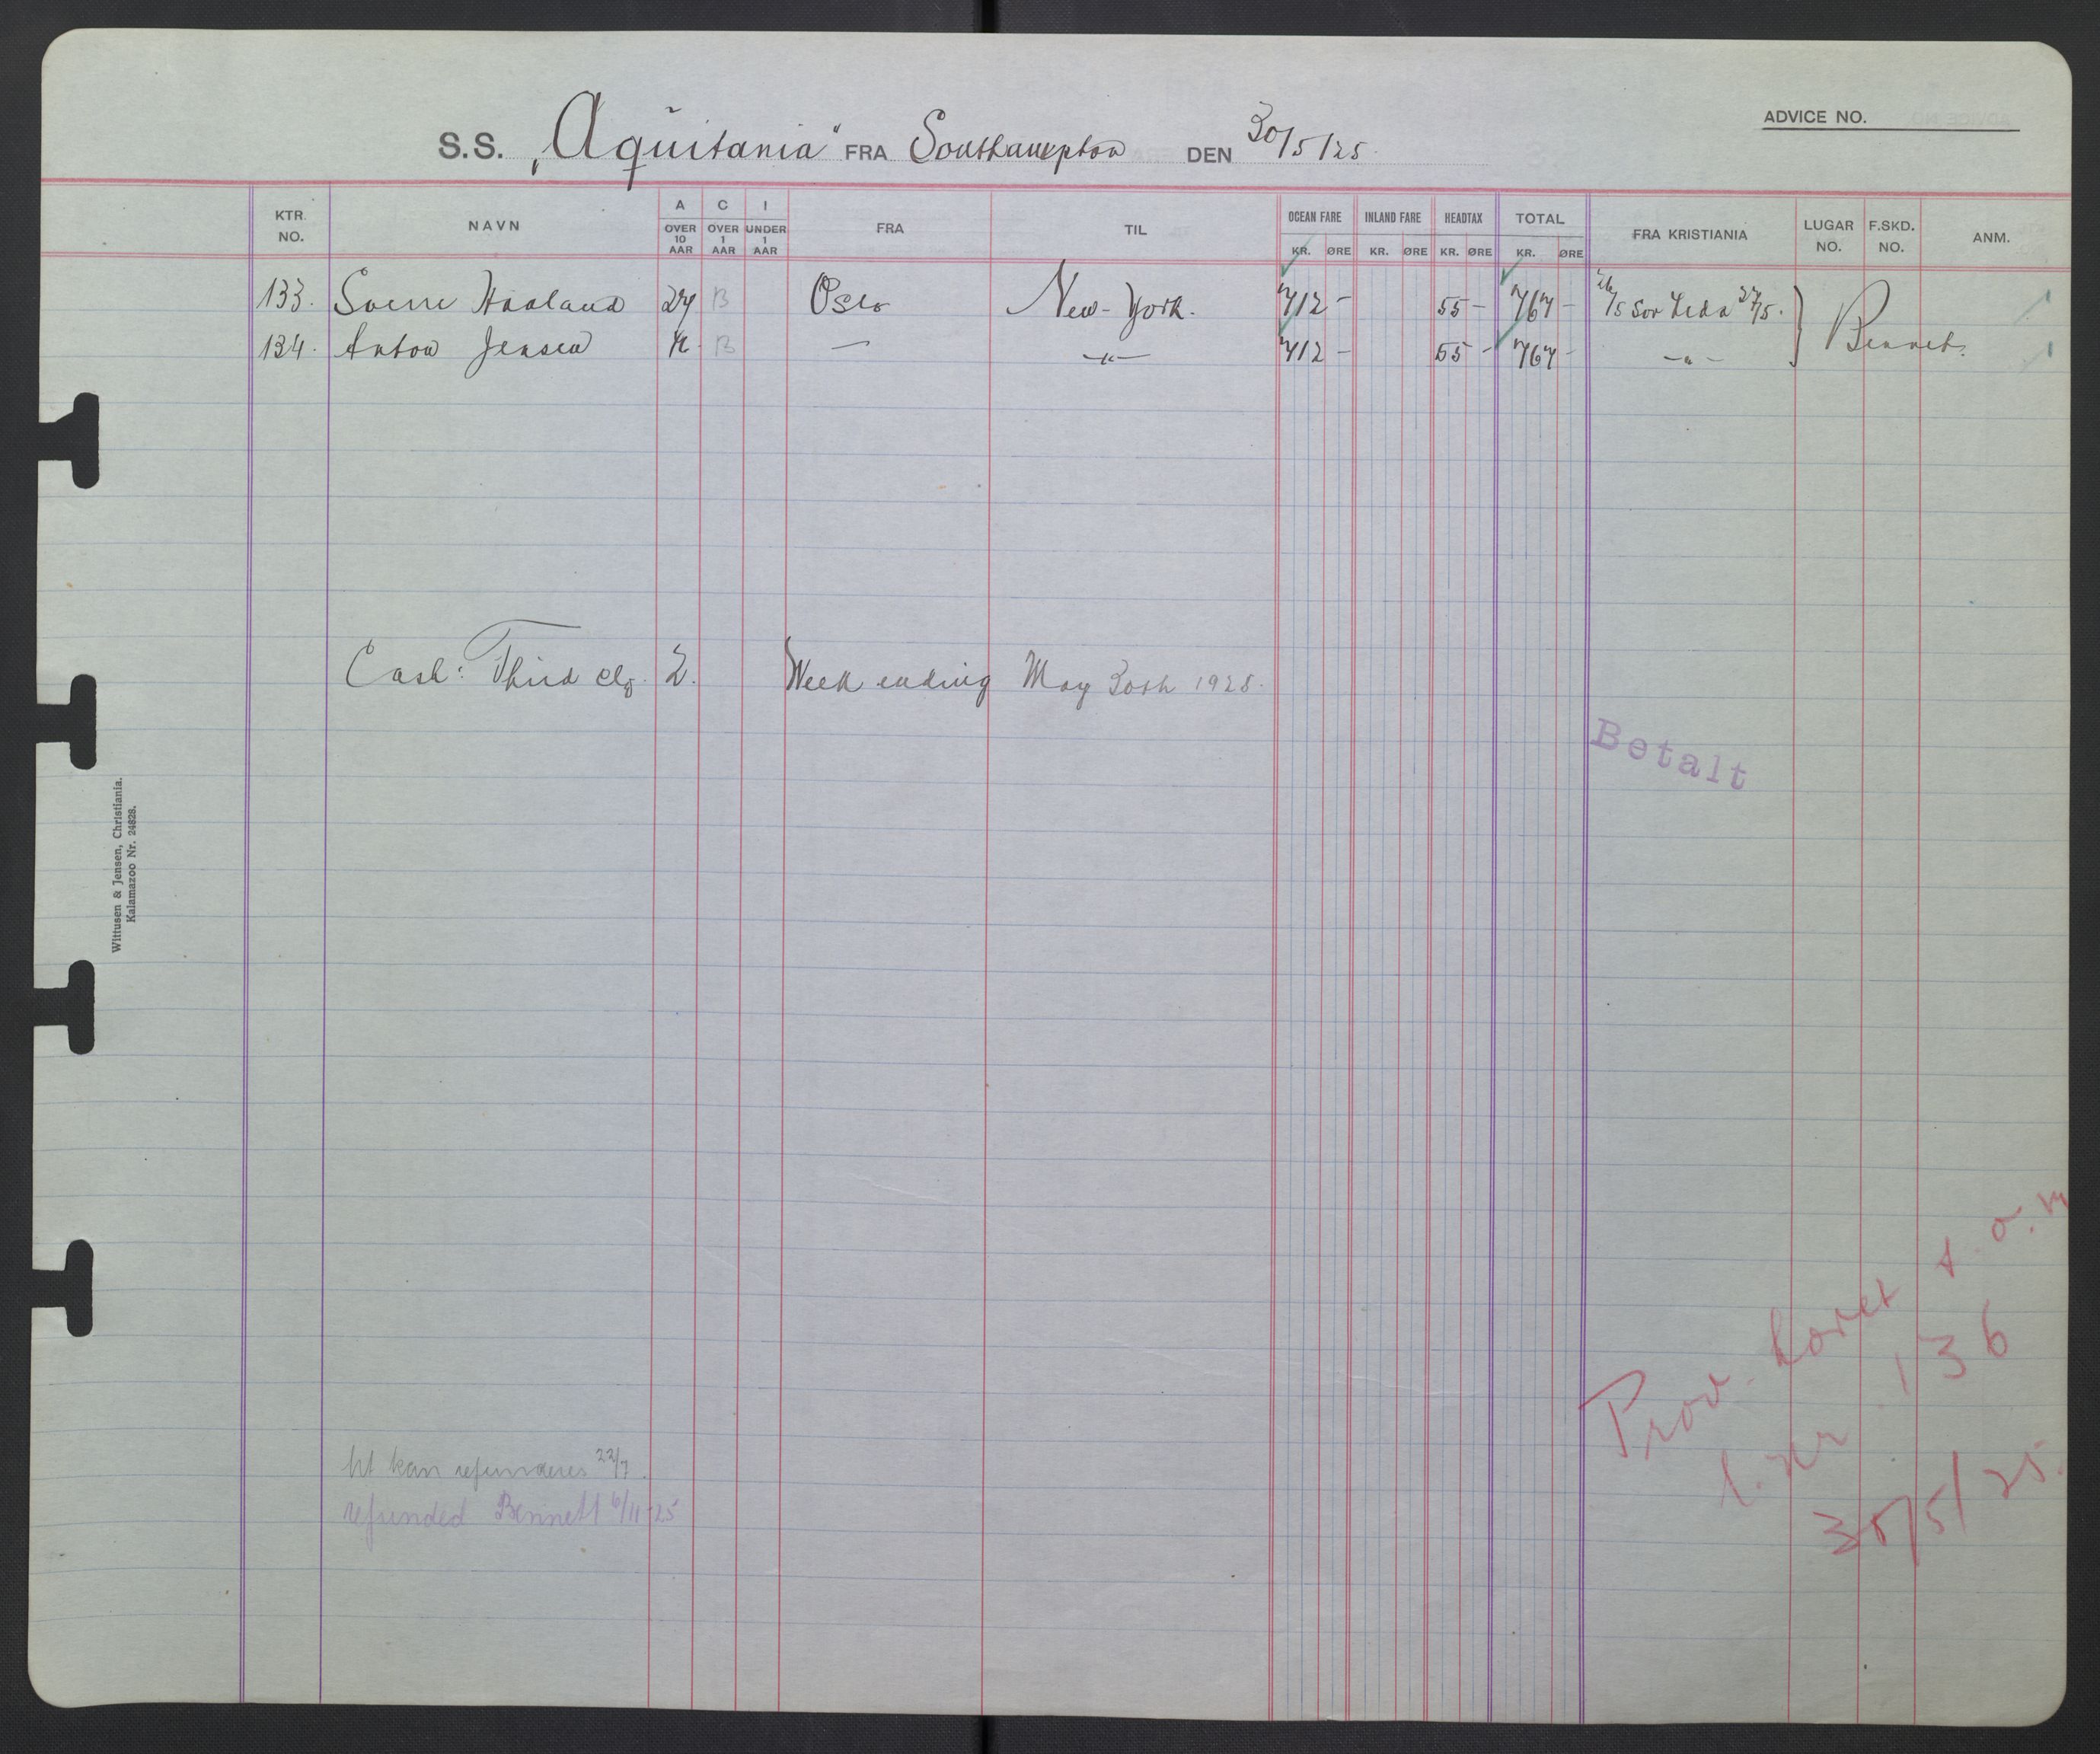 ADVICE NO.
S.S. „Aquitania" FRA Southampton DEN 30/5/25.
KTR. NO. NAVN A OVER 10 AAR C OVER 1 AAR I UNDER 1 AAR FRA TIL OCEAN FARE KR. ØRE INLAND FARE KR. ØRE HEADTAX KR. ØRE TOTAL KR. ØRE FRA KRISTIANIA LUGAR NO. F.SKD. NO. ANM.
133. Sverre Haaland 27 B Oslo New-York. 712 – 55 – 767 – 26/5 Sov Leda 27/5. } Bennet.
134. Anton Jensen B — –"– 712 – 55 – 767 – –"–
Cash: Third clg. 2. Week ending May 30th 1925.
Betalt
Wittusen & Jensen, Christiania.
Kalamazoo Nr. 24828.
Prov. ført s.o.m
l. nr 136
30/5/25.
kan refunderes 22/7.
refunded Bennett 6/11-25